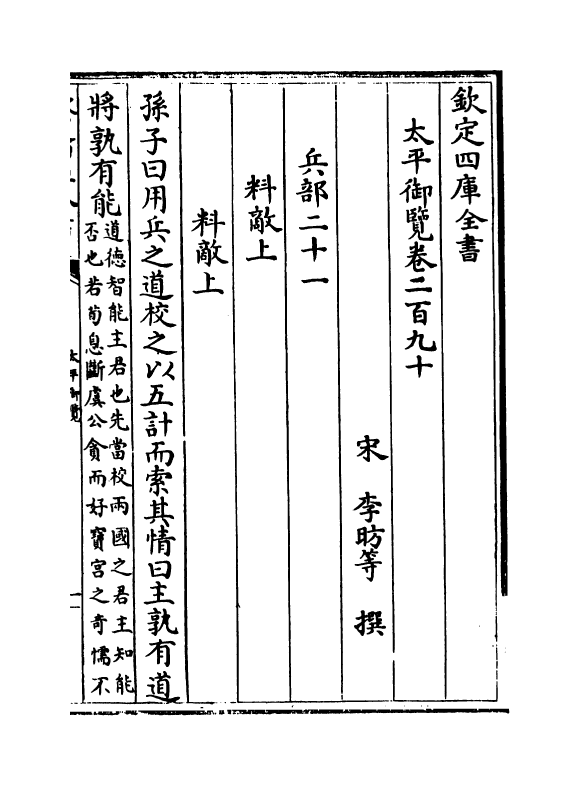 欽定四庫全書
太平御覽卷二百九十
宋　李昉等　撰
兵部二十一
料敵上
料敵上
孫子曰用兵之道校之以五計而索其情曰主孰有道
將孰有能道德智能主君也先當校兩國之君主知能
否也若荀息斷虞公貪而好寶宮之奇懦不
太平御覽
一